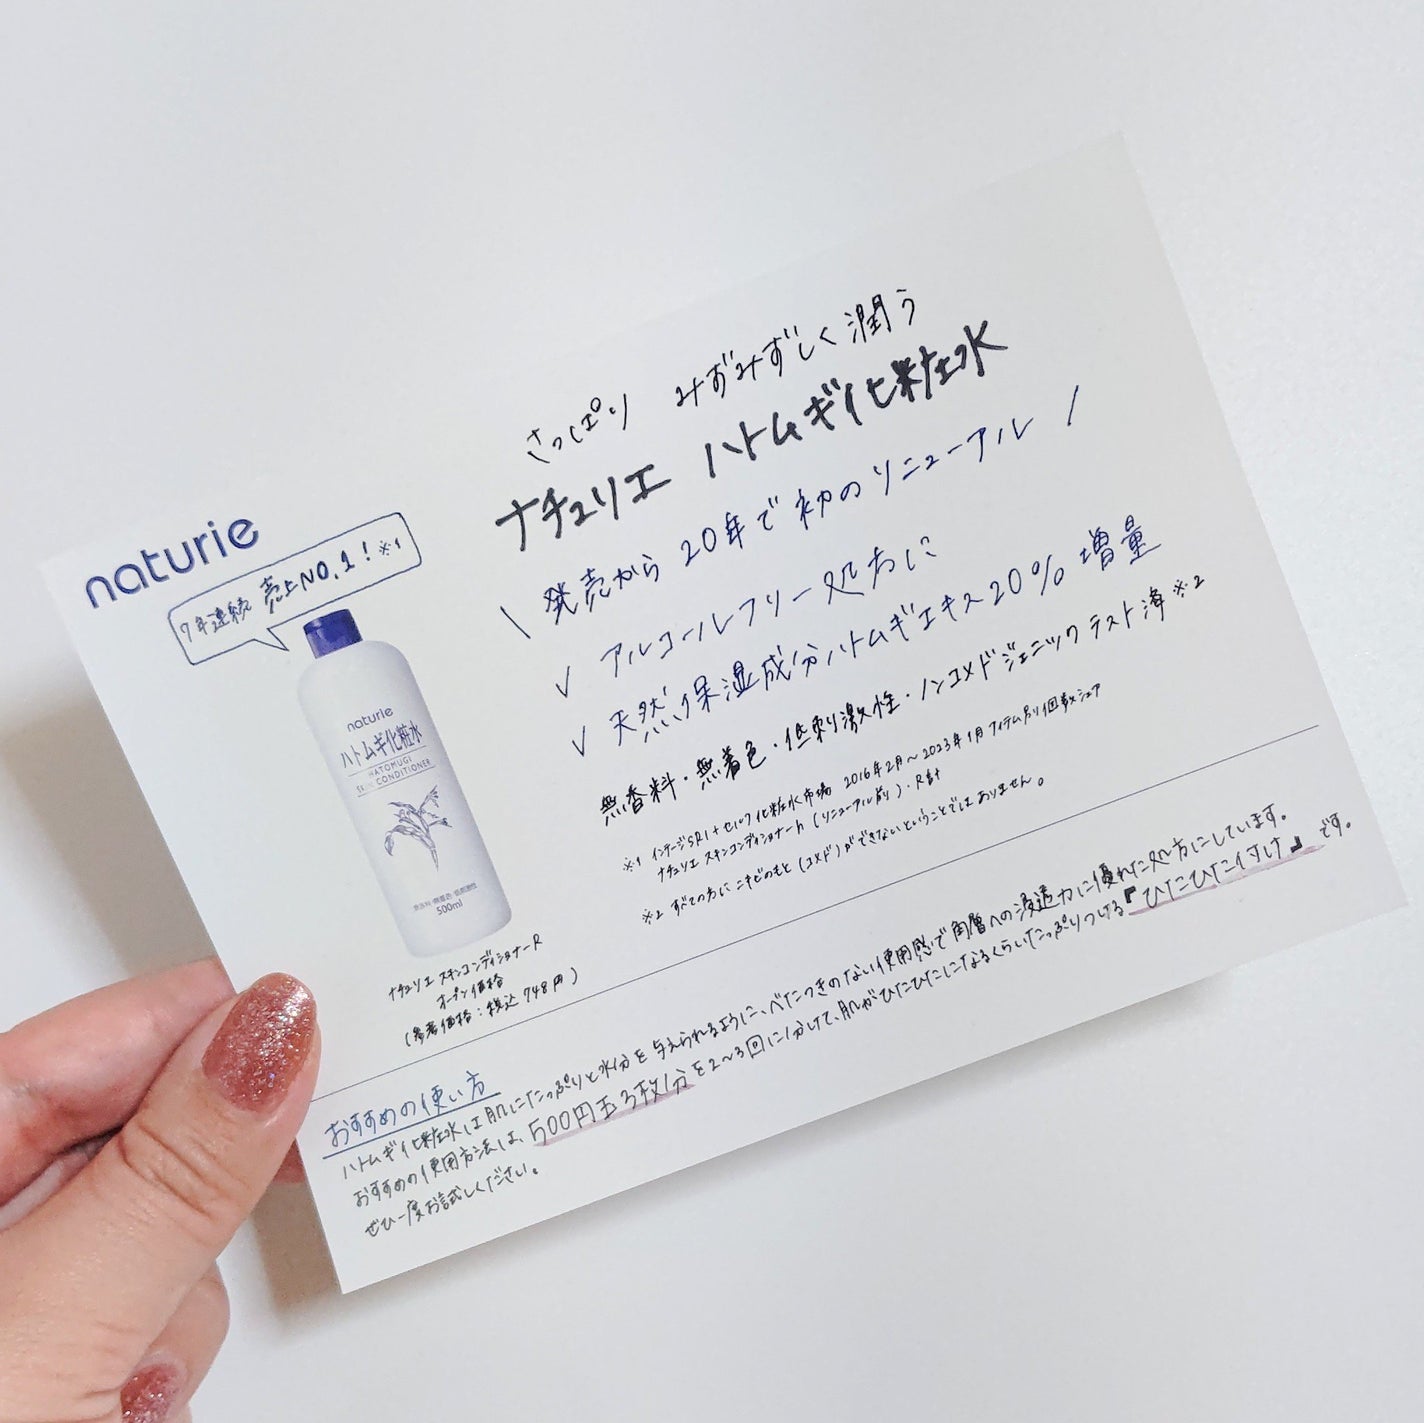 さっぱり みずみずしく潤う
ナチュリエ ハトムギ化粧水
\ 発売から20年で初のリニューアル /
✓ アルコールフリー処方に
✓ 天然保湿成分ハトムギエキス20%増量
無香料・無着色・低刺激性・ノンコメドジェニックテスト済※2
※1 インテージSRI+セルフ化粧水市場 2016年2月~2023年1月アイテム別個数シェア
ナチュリエ スキンコンディショナーh(リニューアル前)・R計
※2 すべての方にニキビのもと(コメド)ができないということではありません。
naturie
7年連続 売上NO.1!※1
naturie
ハトムギ化粧水
HATOMUGI
SKIN CONDITIONER
無香料・無着色・低刺激性
500ml
ナチュリエ スキンコンディショナーR
オープン価格
(参考価格:税込748円)
おすすめの使い方
ハトムギ化粧水は肌にたっぷりと水分を与えられるように、べたつきのない使用感で角層への浸透力に優れた処方にしています。
おすすめの使用方法は、500円玉3枚分を2~3回に分けて、肌がひたひたになるくらいたっぷりつける『ひたひた付け』です。
ぜひ一度お試しください。